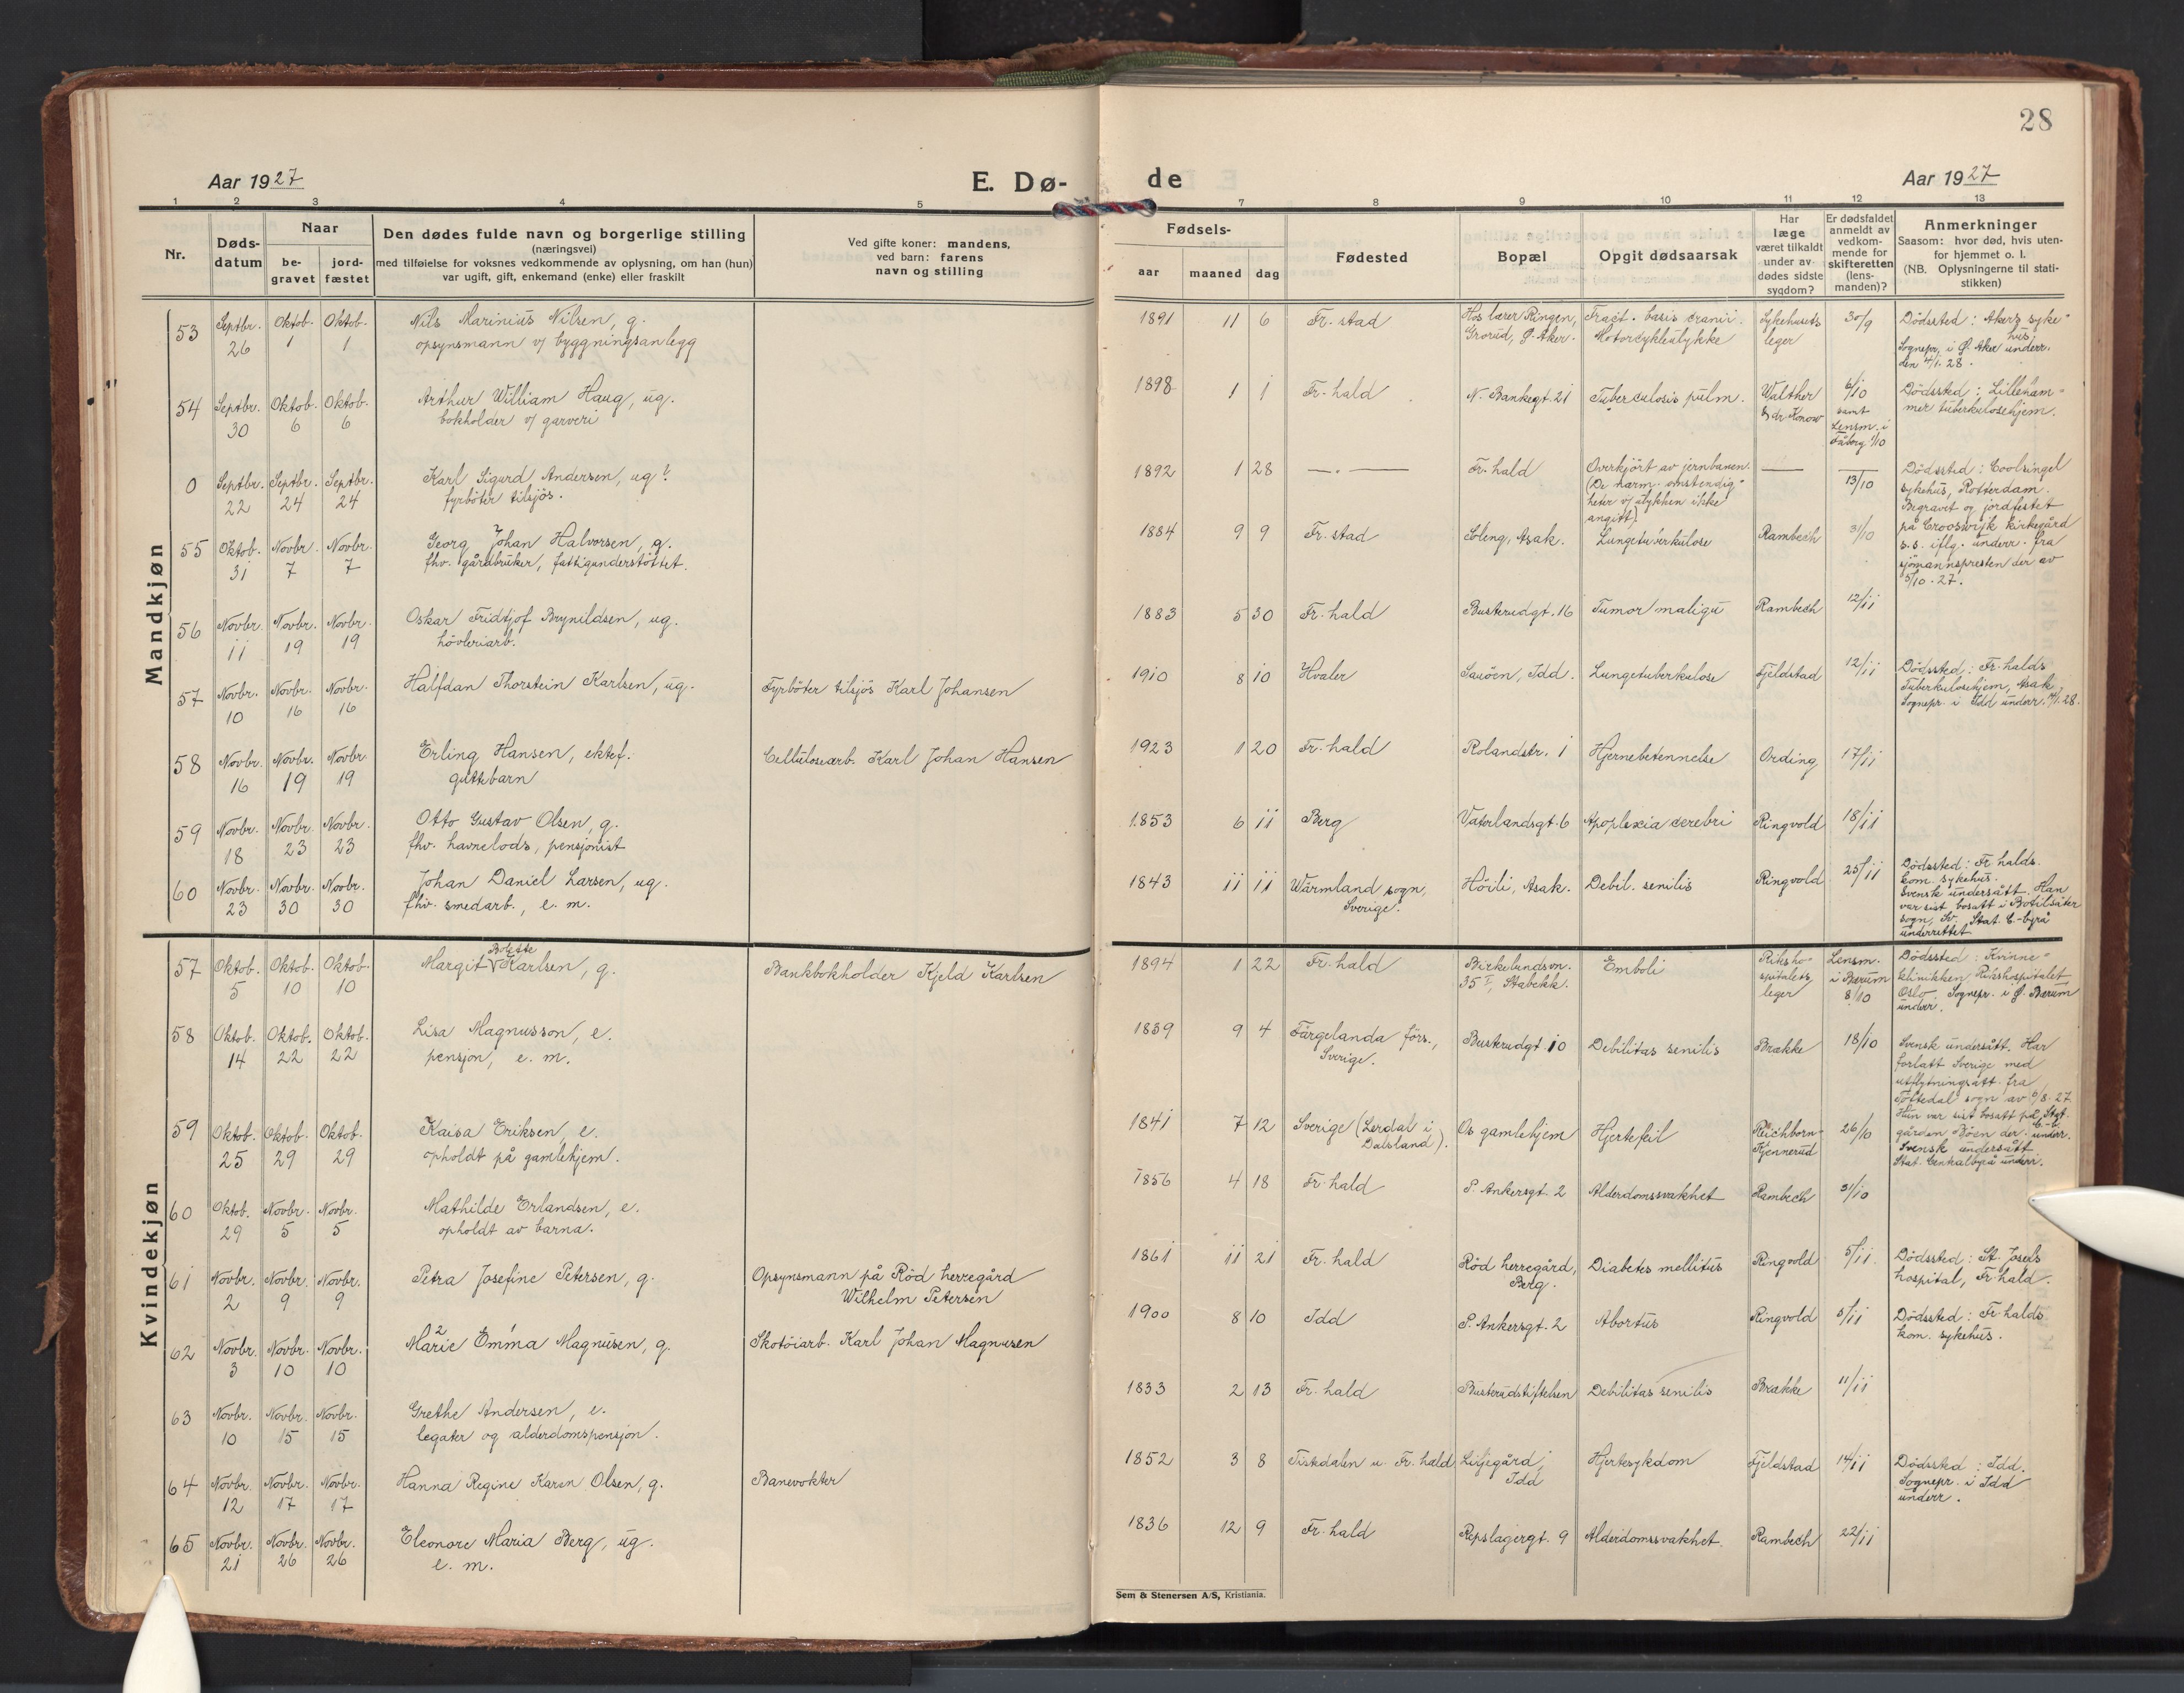 28
Aar 1927 E. Dø- de Aar 1927
1 2 3 4 5 7 8 9 10 11 12 13
Nr.
Døds-
datum
Naar
be-
gravet
jord-
fæstet
Den dødes fulde navn og borgerlige stilling
(næringsvei)
med tilføielse for voksnes vedkommende av oplysning, om han (hun)
var ugift, gift, enkemand (enke) eller fraskilt
Ved gifte koner: mandens,
ved barn: farens
navn og stilling
Fødsels-
aar maaned dag
Fødested
Bopæl
Opgit dødsaarsak
Har
læge
været tilkaldt
under av-
dødes sidste
sygdom?
Er dødsfaldet
anmeldt av
vedkom-
mende for
skifteretten
(lens-
manden)?
Anmerkninger
Saasom: hvor død, hvis uten-
for hjemmet o. l.
(NB. Oplysningerne til stati-
stikken)
Mandkjøn
53 Septbr. 26 Oktob. 1 Oktob. 1
Nils Marinius Nilsen, g.
opsynsmann v/ byggningsanlegg
1891 11 6 Fr. stad
Hos lærer Ringen,
Grorud, Ø. Aker.
Fract. basis cranii.
Motorcykleulykke
Sykehusets
leger
30/9
Dödsted: Akers syke-
hus,
Sognepr. i Ø. Aker underr.
den 4/1. 28.
54 Septbr. 30 Oktob. 6 Oktob. 6
Arthur William Haug, ug.
bokholder v/ garveri
1898 1 1 Fr. hald
N. Bankegt. 21
Tuberculosis pulm.
Walther
& dr. Konow
6/10
samt
Lensm. i
Fåberg 1/10
Dödssted: Lilleham-
mer tuberkulosehjem.
0 Septbr. 22 Septbr. 24 Septbr. 24
Karl Sigurd Andersen, ug?
fyrböter tilsjös.
1892 1 28 —.—
Fr. hald
Overkjört av jernbanen.
(De nærm. omstendig-
heter v/ ulykken ikke
angitt).
—
— 13/10
Dödssted: Coolsingel
sykehus, Rotterdam.
Begravet og jordfestet
på Crooswijk kirkegård
s. s. iflg. underr. fra
sjömannspresten der av
5/10. 27.
55 Oktob. 31 Novbr. 7 Novbr. 7
Georg Johan Halvorsen, g.
fhv. gårdbruker, fattigunderstöttet.
1884 9 9 Fr. stad
Eleng, Asak.
Lungetuberkulose
Rambech
31/10
56 Novbr. 11 Novbr. 19 Novbr. 19
Oskar Fridtjof Brynildsen, ug.
hövleriarb.
1883 5 30 Fr. hald
Busterudgt. 16
Tumor maligú
Rambech
12/11
57 Novbr. 10 Novbr. 16 Novbr. 16
Halfdan Thorstein Karlsen, ug.
Fyrböter tilsjös Karl Johansen
1910 8 10 Hvaler
Sauöen, Idd.
Lungetuberkulose
Fjeldstad
12/11
Dödssted: Fr. halds
Tuberkulosehjem, Asak,
Sognepr. i Idd underr. 4/1. 28.
58 Novbr. 16 Novbr. 19 Novbr. 19
Erling Hansen, ektef.
guttebarn
Cellulosearb. Karl Johan Hansen
1923 1 20 Fr. hald
Rolandstr. 1
Hjernebetennelse
Ording
17/11
59 Novbr. 18 Novbr. 23 Novbr. 23
Otto Gustav Olsen, g.
fhv. havnelods, pensjonist
1853 6 11 Berg
Vaterlandsgt. 6
Apoplexia cerebri
Ringvold
18/11
60 Novbr. 23 Novbr. 30 Novbr. 30
Johan Daniel Larsen, ug.
fhv. smedarb., e. m.
1843 11 11 Wärmland sogn,
Sverige.
Höili, Asak.
Debil. senilis
Ringvold
25/11
Dödssted: Fr. halds.
kom. sykehus.
Svensk undersått. Han
var sist bosatt i Botilsäter
sogn, Sv. Stat. C-byrå
underrettet
Kvindekjøn
57 Oktob. 5 Oktob. 10 Oktob. 10
Bolette
Margit Karlsen, g.
Bankbokholder Kjeld Karlsen
1894 1 22 Fr. hald
Birkelundsvn.
35 I, Stabekk.
Emboli
Riksho-
spitalets
leger
Lensm.
i Bærum
8/10
Dödssted: Kvinne-
klinikken, Rikshospitalet
Oslo. Sognepr. i Ø. Bærum
underr.
58 Oktob. 14 Oktob. 22 Oktob. 22
Lisa Magnusson, e.
pensjon, e. m.
1839 9 4 Färgelanda förs.,
Sverige.
Busterudgt. 10
Debilitas senilis
Brække
18/10
Svensk undersått. Har
forlatt Sverige med
utflytningsatt. fra
Töftedal sogn av 6/8. 27.
Hun var sist bosatt på
gården Böen der. Stat. C-b. underr.
59 Oktob. 25 Oktob. 29 Oktob. 29
Kaisa Eriksen, e.
opholdt på gamlehjem.
1841 7 12 Sverige (Lerdal i
Dalsland).
Os gamlehjem
Hjertefeil
Reichborn-
Kjennerud
26/10
Svensk undersått
Stat. Centralbyrå underr.
60 Oktob. 29 Novbr. 5 Novbr. 5
Mathilde Erlandsen, e.
opholdt av barna.
1856 4 18 Fr. hald
P. Ankersgt. 2
Alderdomssvakhet
Rambech
31/10
61 Novbr. 2 Novbr. 9 Novbr. 9
Petra Josefine Petersen, g.
Opsynsmann på Röd herregård
Wilhelm Petersen
1861 11 21 Fr. hald
Röd herregård,
Berg.
Diabetes mellitus
Ringvold
5/11
Dödssted: St. Josefs
hospital, Fr. hald.
62 Novbr. 3 Novbr. 10 Novbr. 10
Marie Emma Magnusen, g.
Skotöiarb. Karl Johan Magnusen
1900 8 10 Idd
P. Ankersgt. 2
Abortus
Ringvold
5/11
Dödssted: Fr. halds
kom. sykehus.
63 Novbr. 10 Novbr. 15 Novbr. 15
Grethe Andersen, e.
legater og alderdomspensjon.
1833 2 13 Fr. hald
Busterudstiftelsen
Debilitas senilis
Brække
11/11
64 Novbr. 12 Novbr. 17 Novbr. 17
Hanna Regine Karen Olsen, g.
Banevokter
1852 3 8 Tistedalen u. Fr. hald
Liljegård,
Idd
Hjertesykdom
Fjeldstad
14/11
Dödssted: Idd.
Sognepr. i Idd
underr.
65 Novbr. 21 Novbr. 26 Novbr. 26
Eleonore Maria Berg, ug.
e. m.
1836 12 9 Fr. hald
Repslagergt. 9
Alderdomssvakhet.
Rambech
22/11
Sem & Stenersen A/S, Kristiania.